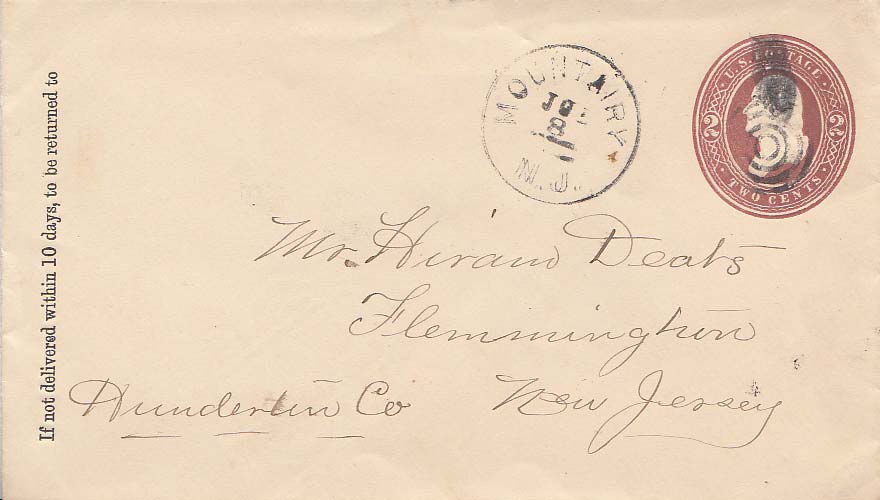 If not delivered within 10 days, to be returned to
MOUNTAIRY
8
N.J.
U.S. POSTAGE
2 2
TWO CENTS
Mr. Hiram Deats
Flemmington
Hunderlin Co New Jersey